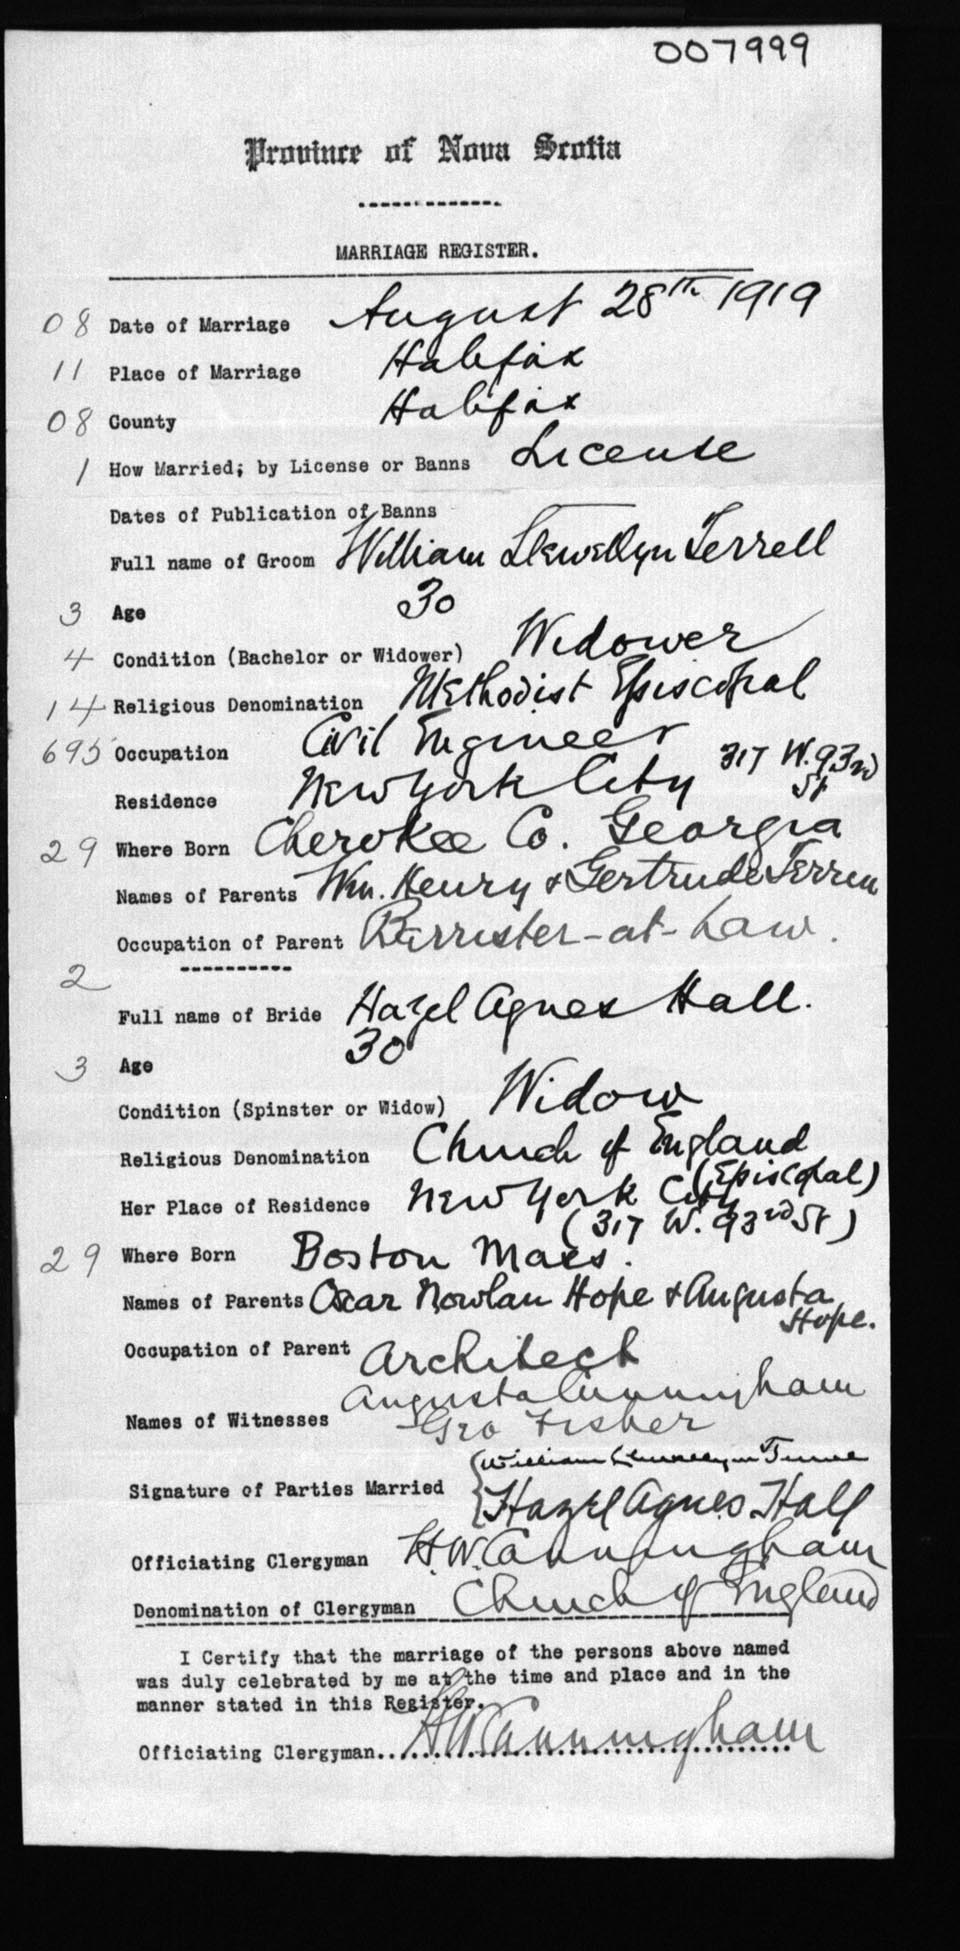 007999
Province of Nova Scotia
MARRIAGE REGISTER.
08 Date of Marriage August 28th 1919
11 Place of Marriage Halifax
08 County Halifax
1 How Married; by License or Banns License
Dates of Publication of Banns
Full name of Groom William Llewellyn Terrell
3 Age 30
4 Condition (Bachelor or Widower) Widower
14 Religious Denomination Methodist Episcopal
695 Occupation Civil Engineer
Residence New York City 317 W. 93rd St
29 Where Born Cherokee Co. Georgia
Names of Parents Wm. Henry & Gertrude Terrell
Occupation of Parent Barrister-at-Law.
2
Full name of Bride Hazel Agnes Hall.
3 Age 30
Condition (Spinster or Widow) Widow
Religious Denomination Church of England
(Episcopal)
Her Place of Residence New York City
(317 W. 93rd St)
29 Where Born Boston Mass.
Names of Parents Oscar Nowlan Hope & Augusta
Hope.
Occupation of Parent Architect
Augusta Cunningham
Names of Witnesses Geo Fisher
William Llewellyn Terrell
Signature of Parties Married Hazel Agnes Hall
Officiating Clergyman H.W. Cunningham
Denomination of Clergyman Church of England
I Certify that the marriage of the persons above named
was duly celebrated by me at the time and place and in the
manner stated in this Register.
Officiating Clergyman H W Cunningham